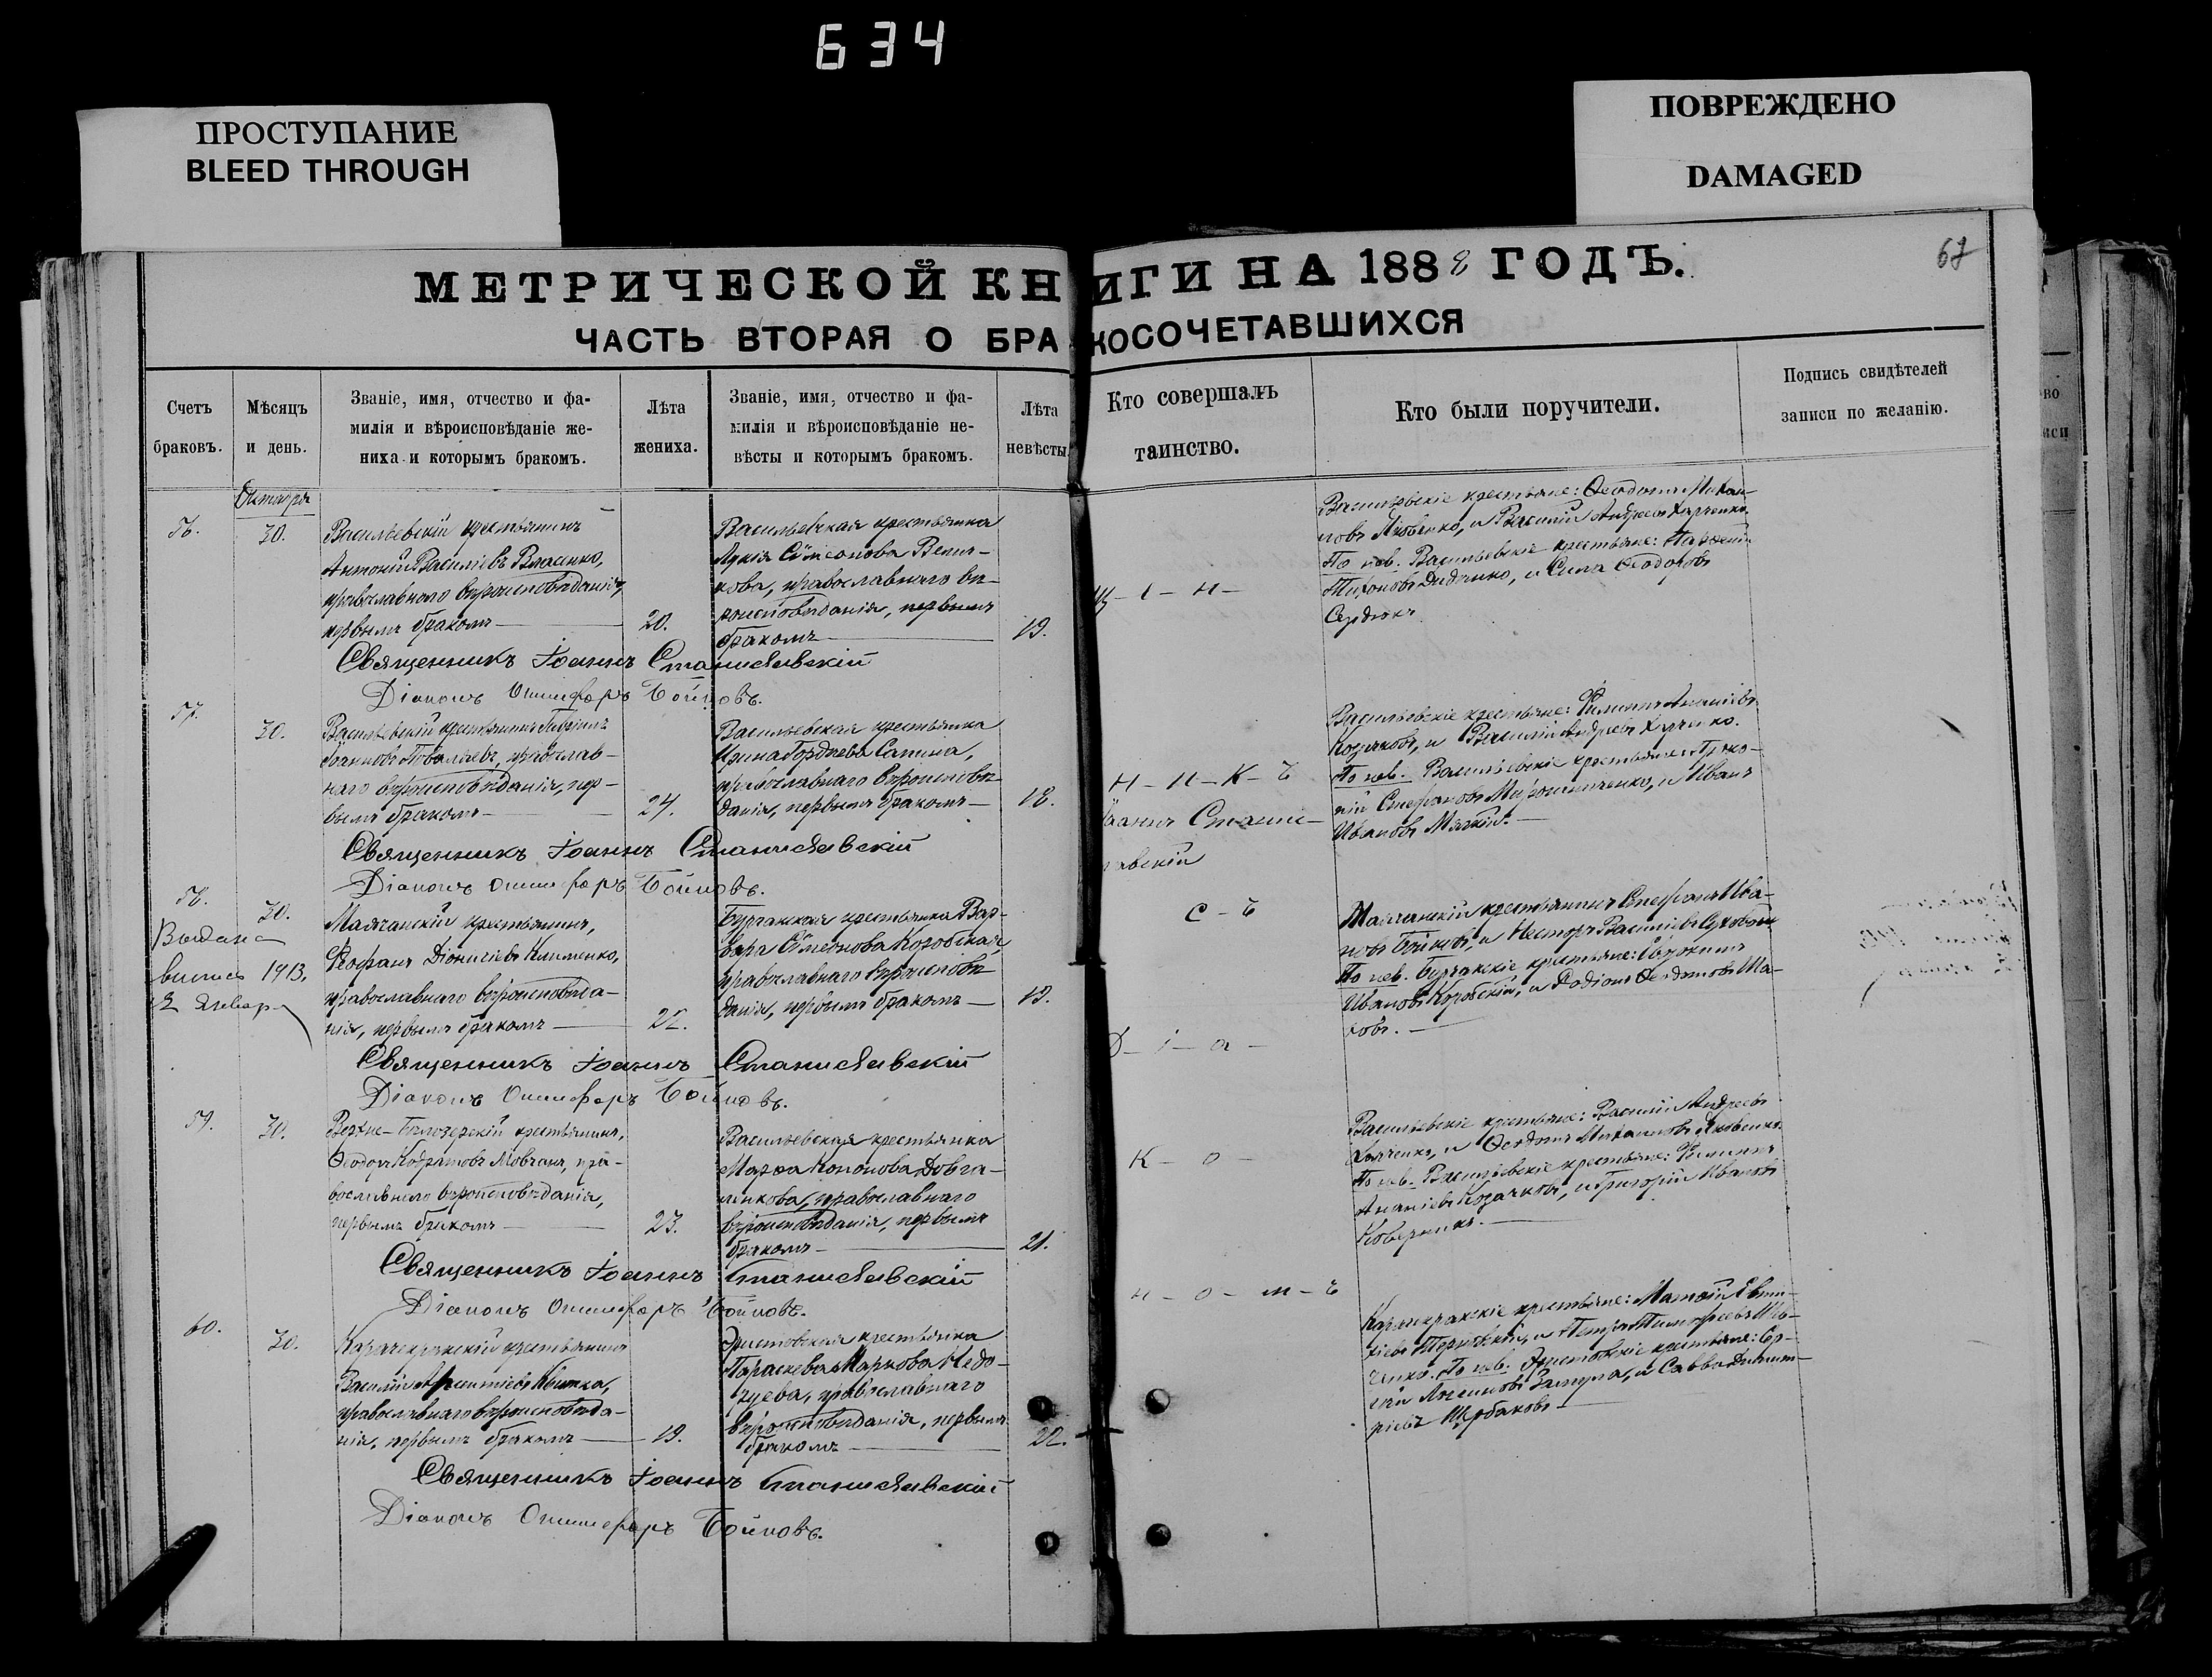 634
ПРОСТУПАНИЕ
BLEED THROUGH
ПОВРЕЖДЕНО
DAMAGED
МЕТРИЧЕСКОЙ КНИГИ НА 1888 ГОДЪ.
67
ЧАСТЬ ВТОРАЯ О БРАКОСОЧЕТАВШИХСЯ
Счетъ
браковъ.
Мѣсяцъ
и день.
Званіе, имя, отчество и фа-
милія и вѣроисповѣданіе же-
ниха и которымъ бракомъ.
Лѣта
жениха.
Званіе, имя, отчество и фа-
милія и вѣроисповѣданіе не-
вѣсты и которымъ бракомъ.
Лѣта
невѣсты
Кто совершалъ
таинство.
Кто были поручители.
Подпись свидѣтелей
записи по желанію.
Октября
56.
30.
Васильевскій крестьянинъ
Антоній Василіевъ Власенко,
православнаго вѣроисповѣданія,
первымъ бракомъ
20.
Васильевская крестьянка
Лукія Сѵмеонова Велич-
кова, православнаго вѣ-
роисповѣданія, первымъ
бракомъ
19.
Васильевскіе крестьяне: Ѳеодотъ Михаи-
ловъ Яковенко, и Василій Андреевъ Харченко.
По нев. Васильевскіе крестьяне:
Тихоновъ Диденко, и Сила Ѳеодоровъ
Сердюкъ
Священникъ Іоаннъ Станиславскій
Діаконъ Онисифоръ Бойновъ.
57.
30.
Васильевскій крестьянинъ Гавріилъ
Іоанновъ Ковалевъ, православ-
наго вѣроисповѣданія, пер-
вымъ бракомъ
24.
Васильевская крестьянка
Ирина Гордѣева Сапина,
православнаго вѣроисповѣ-
данія, первымъ бракомъ
18.
Н-И-К-Ъ
Іоаннъ Станис-
лавскій
Васильевскіе крестьяне: Филиппъ Ананіевъ
Козачковъ, и Василій Андреевъ Харченко.
По нев. Васильевскіе крестьяне: Проко-
пій Стефановъ Мирошниченко, и Иванъ
Ивановъ Мягкій.
Священникъ Іоаннъ Станиславскій
Діаконъ Онисифоръ Бойновъ.
58.
30.
Выдана
выпись 1913,
2 Январ
Маячанскій крестьянинъ,
Ѳеофанъ Діонисіевъ Клименко,
православнаго вѣроисповѣда-
нія, первымъ бракомъ
22.
Бурчакская крестьянка Вар-
вара Сѵмеонова Коробская,
православнаго вѣроисповѣ-
данія, первымъ бракомъ
19.
С-Ъ
Д-і-а-
Маячанскій крестьянинъ Стефанъ Ива-
новъ Бойковъ, и Несторъ Василіевъ
По нев. Бурчакскіе крестьяне:
Ивановъ Коробскій, и Родіонъ Ша-
ховъ.
Священникъ Іоаннъ Станиславскій
Діаконъ Онисифоръ Бойновъ.
59.
30.
Верхне-Бѣлозерскій крестьянинъ,
Ѳеодоръ Кодратовъ Мовчанъ, пра-
вославнаго вѣроисповѣданія,
первымъ бракомъ
23.
Васильевская крестьянка
Марѳа Кононова Довга-
ленкова, православнаго
вѣроисповѣданія, первымъ
бракомъ
21.
К-о-
Васильевскіе крестьяне: Василій Андреевъ
Харченко, и Ѳеодотъ Михаиловъ Яковенко.
По нев. Васильевскіе крестьяне: Филиппъ
Ананіевъ Козачковъ, и Григорій Ивановъ
Священникъ Іоаннъ Станиславскій
Діаконъ Онисифоръ Бойновъ.
60.
30.
Карачекракскій крестьянинъ
Василій Квитка,
православнаго вѣроисповѣда-
нія, первымъ бракомъ
19.
Эристовская крестьянка
Параскева Маркова Недо-
рѣева, православнаго
вѣроисповѣданія, первымъ
бракомъ
22.
н-о-м-ъ
Карачекракскіе крестьяне: Матѳій
и Петръ Тимофеевъ Ше-
ченко. По нев. Эристовскіе крестьяне: Сер-
гій и Савва Дмит-
ріевъ Щербаковъ
Священникъ Іоаннъ Станиславскій
Діаконъ Онисифоръ Бойновъ.